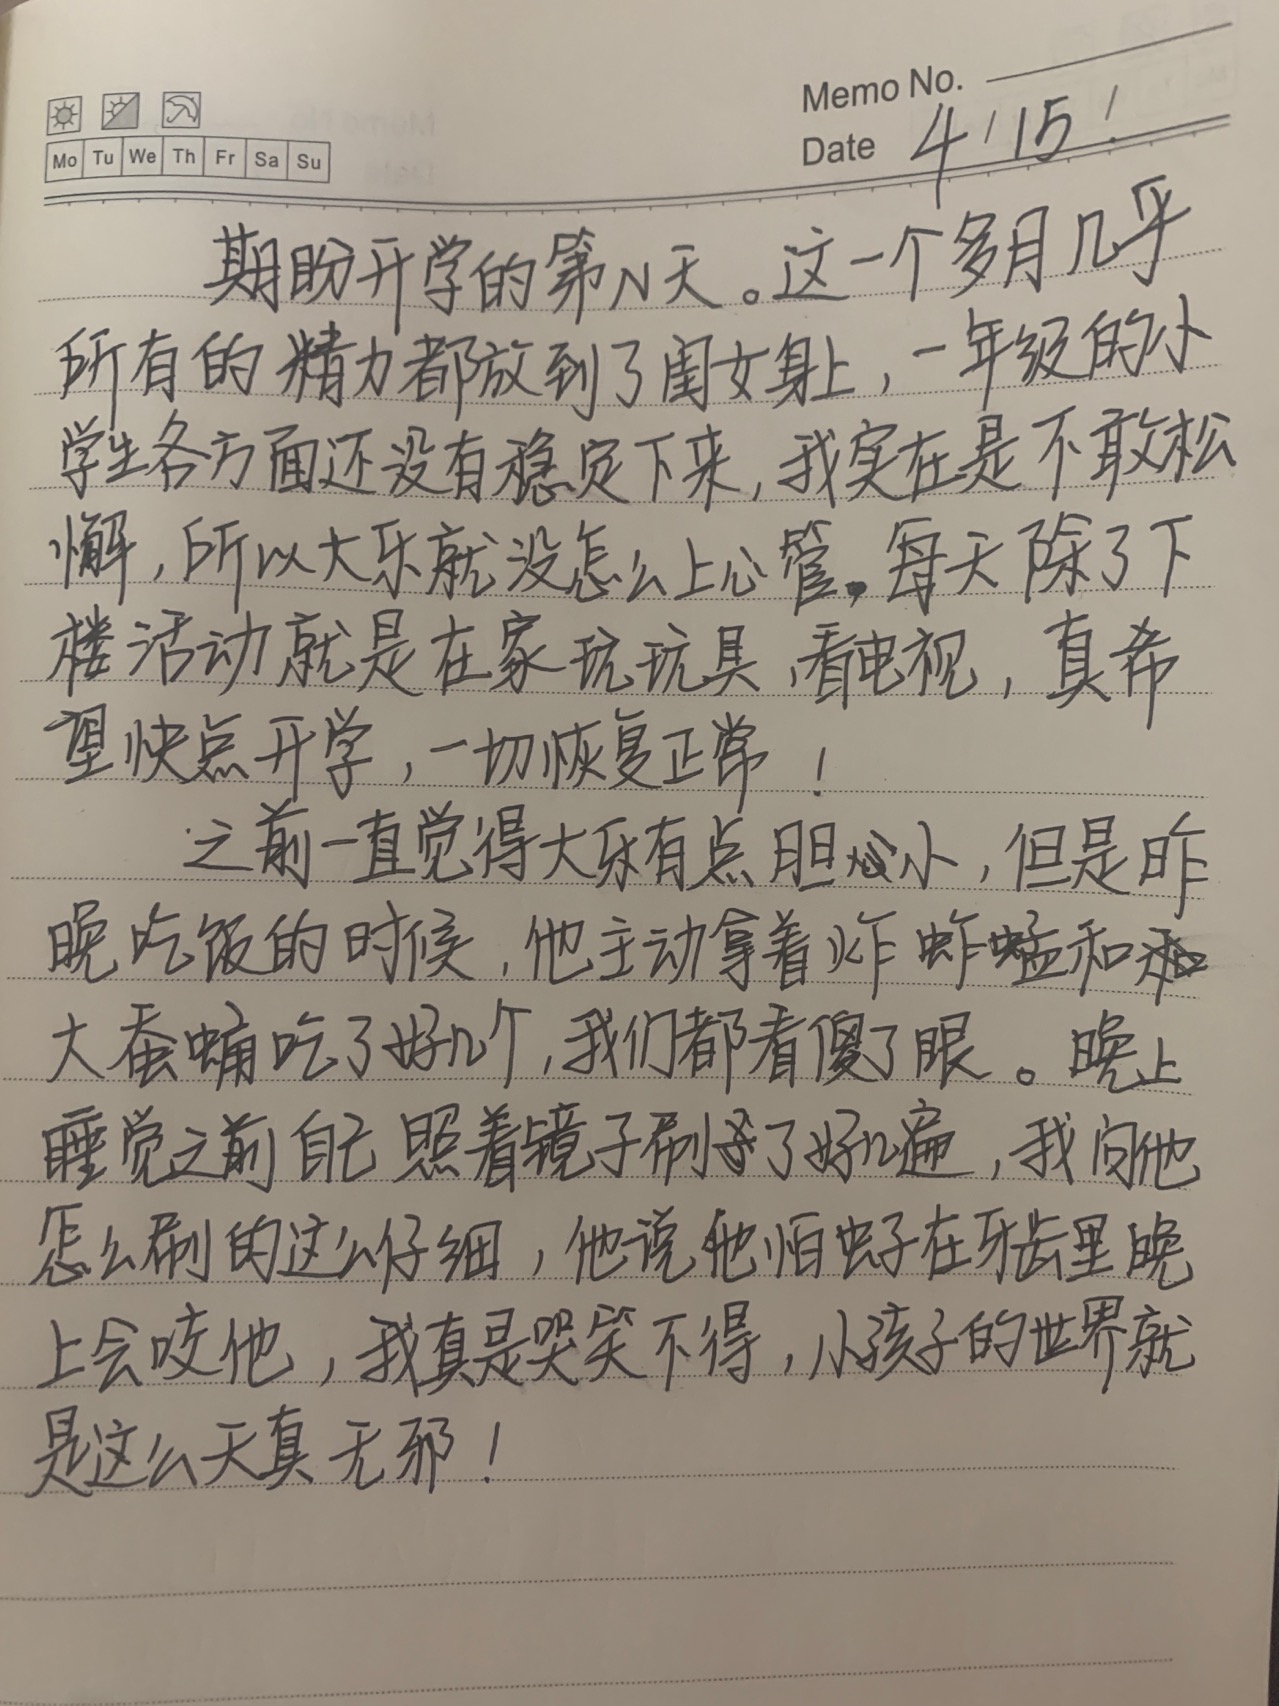 Memo No.
Date 4/15/
Mo Tu We Th Fr Sa Su
期盼开学的第N天。这一个多月几乎
所有的精力都放到了闺女身上，一年级的小
学生各方面还没有稳定下来，我实在是不敢松
懈，所以大乐就没怎么上心管。每天除了下
楼活动就是在家玩玩具，看电视，真希
望快点开学，一切恢复正常！
之前一直觉得大乐有点胆小，但是昨
晚吃饭的时候，他主动拿着炸蚱蜢和
大蚕蛹吃了好几个，我们都看傻了眼。晚上
睡觉之前自己照着镜子刷了好几遍，我问他
怎么刷的这么仔细，他说他怕虫子在牙齿里晚
上会咬他，我真是哭笑不得，小孩子的世界就
是这么天真无邪！